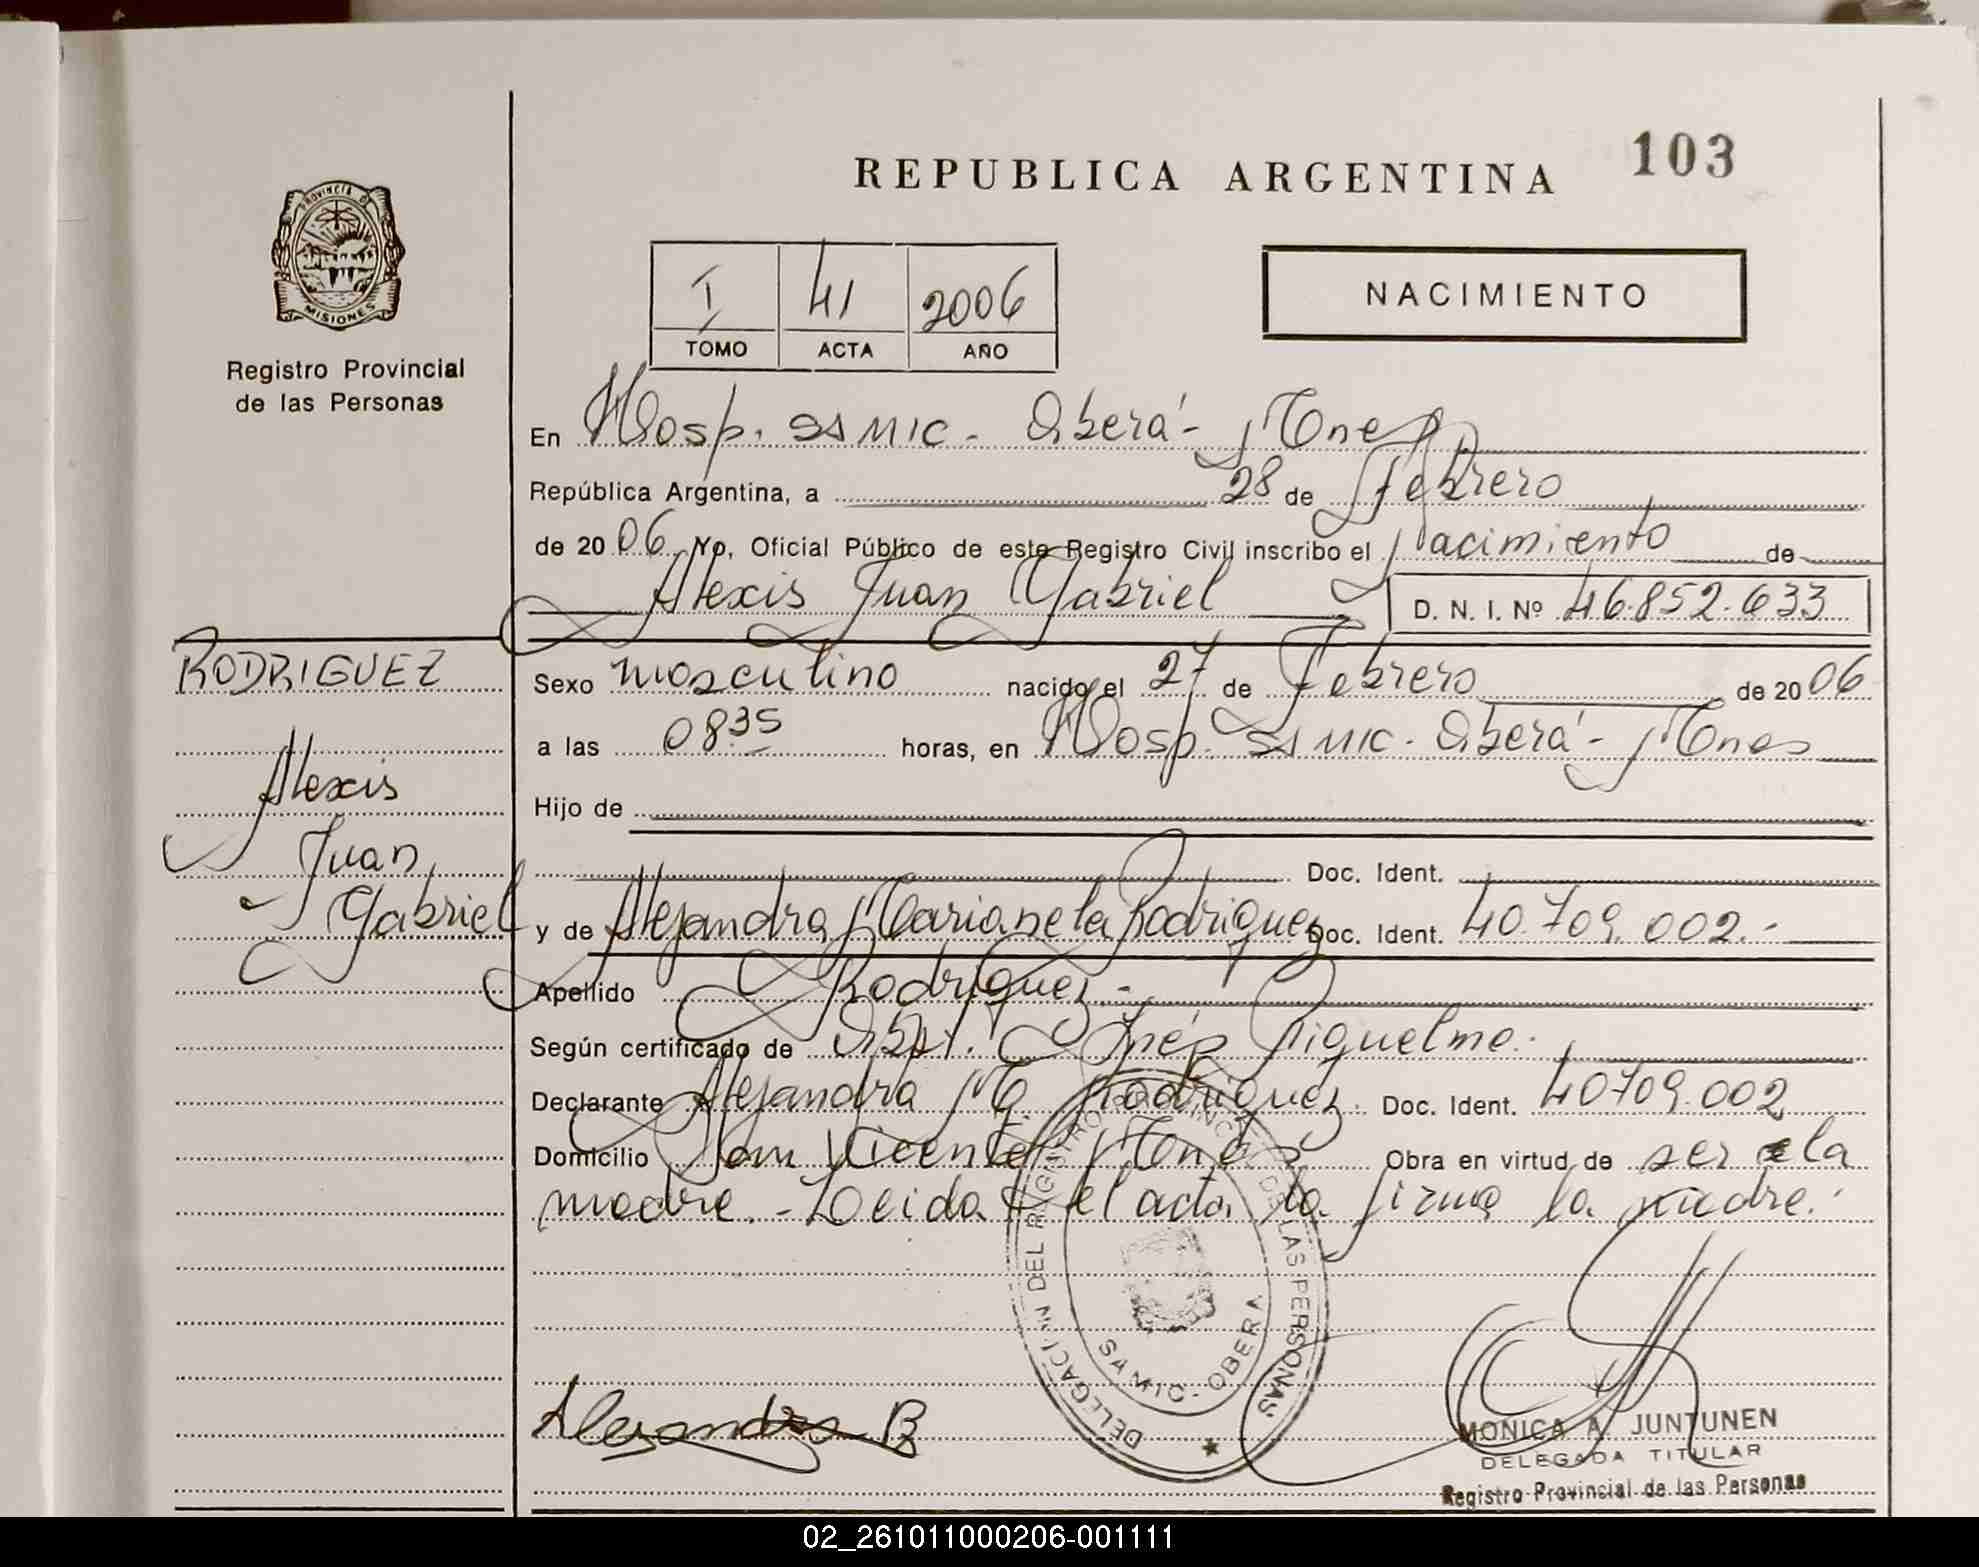 103
REPUBLICA ARGENTINA
PROVINCIA DE
MISIONES
Registro Provincial
de las Personas
I 41 2006
TOMO ACTA AÑO
NACIMIENTO
En Hosp. SAMIC - Oberá - Mnes
República Argentina, a 28 de Febrero
de 2006 Yo, Oficial Público de este Registro Civil inscribo el Nacimiento de
Alexis Juan Gabriel D. N. I. Nº 46.852.633
RODRIGUEZ
Alexis
Juan
Gabriel
Sexo masculino nacido el 27 de Febrero de 2006
a las 0835 horas, en Hosp. SAMIC - Oberá - Mnes
Hijo de
Doc. Ident.
y de Alejandra Marianela Rodriguez Doc. Ident. 40.709.002.-
Apellido Rodriguez.-
Según certificado de Obst. Inés Riquelme.
Declarante Alejandra M. Rodriguez. Doc. Ident. 40709.002
Domicilio San Vicente Mnes Obra en virtud de ser la
madre.- Leida el acta la firma la madre.
DELEGACION DEL REGISTRO PROVINCIAL DE LAS PERSONAS
SAMIC - OBERA
Alejandra R
MONICA A. JUNTUNEN
DELEGADA TITULAR
Registro Provincial de las Personas
02_261011000206-001111